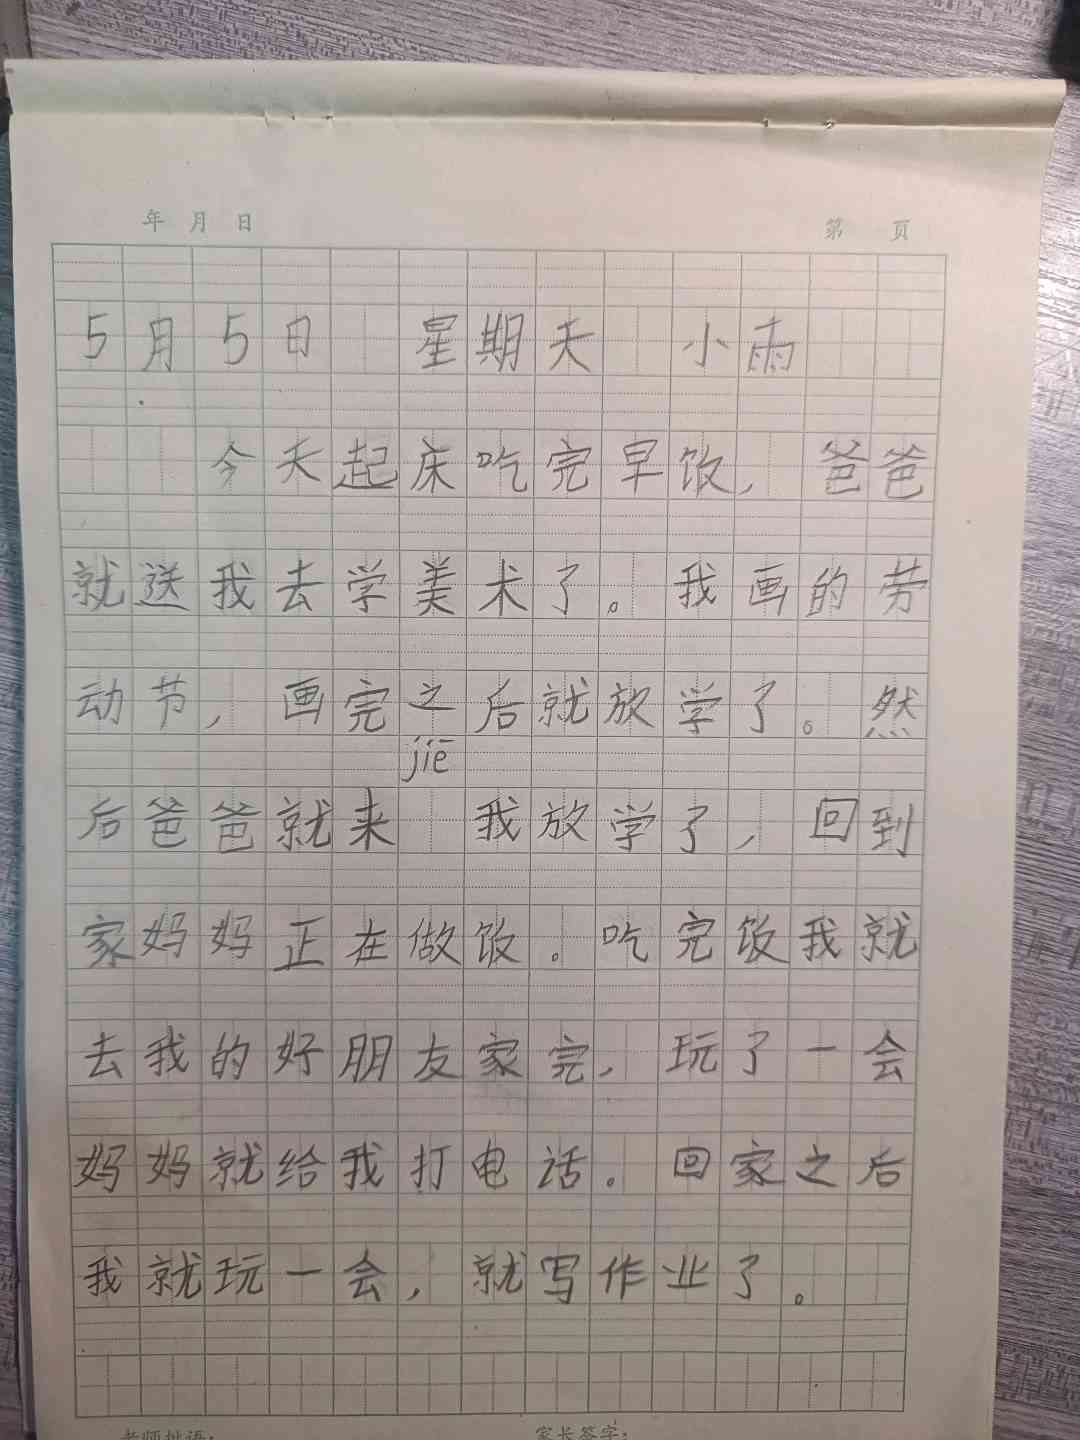 年 月 日 第 页
5月5日 星期天 小雨
今天起床吃完早饭，爸爸
就送我去学美术了。我画的劳
动节，画完之后就放学了。然
jiē
后爸爸就来 我放学了，回到
家妈妈正在做饭。吃完饭我就
去我的好朋友家完，玩了一会
妈妈就给我打电话。回家之后
我就玩一会，就写作业了。
老师批语： 家长签字：